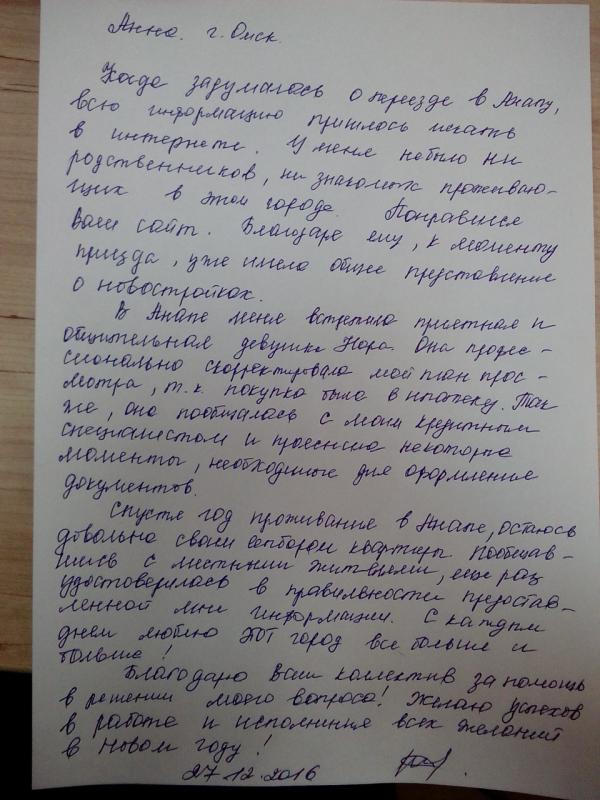 Анна. г. Омск.
Когда задумалась о переезде в Анапу,
всю информацию пришлось искать
в интернете. У меня небыло ни
родственников, ни знакомых проживаю-
щих в этом городе. Понравился
Ваш сайт. Благодаря ему, к моменту
приезда, уже имела общее представление
о новостройках.
В Анапе меня встретила приятная и
общительная девушка Нора. Она профес-
сионально скорректировала мой план прос-
мотра, т.к. покупка была в ипотеку. Так
же, она пообщалась с моим кредитным
специалистом и прояснила некоторые
моменты, необходимые для оформления
документов.
Спустя год проживания в Анапе, остаюсь
довольна своим выбором квартиры. Пообщав-
шись с местными жителями, еще раз
удостоверилась в правильности предостав-
ленной мне информации. С каждым
днем люблю этот город все больше и
больше!
Благодарю Ваш коллектив за помощь
в решении моего вопроса! Желаю успехов
в работе и исполнения всех желаний
в Новом году!
27.12.2016